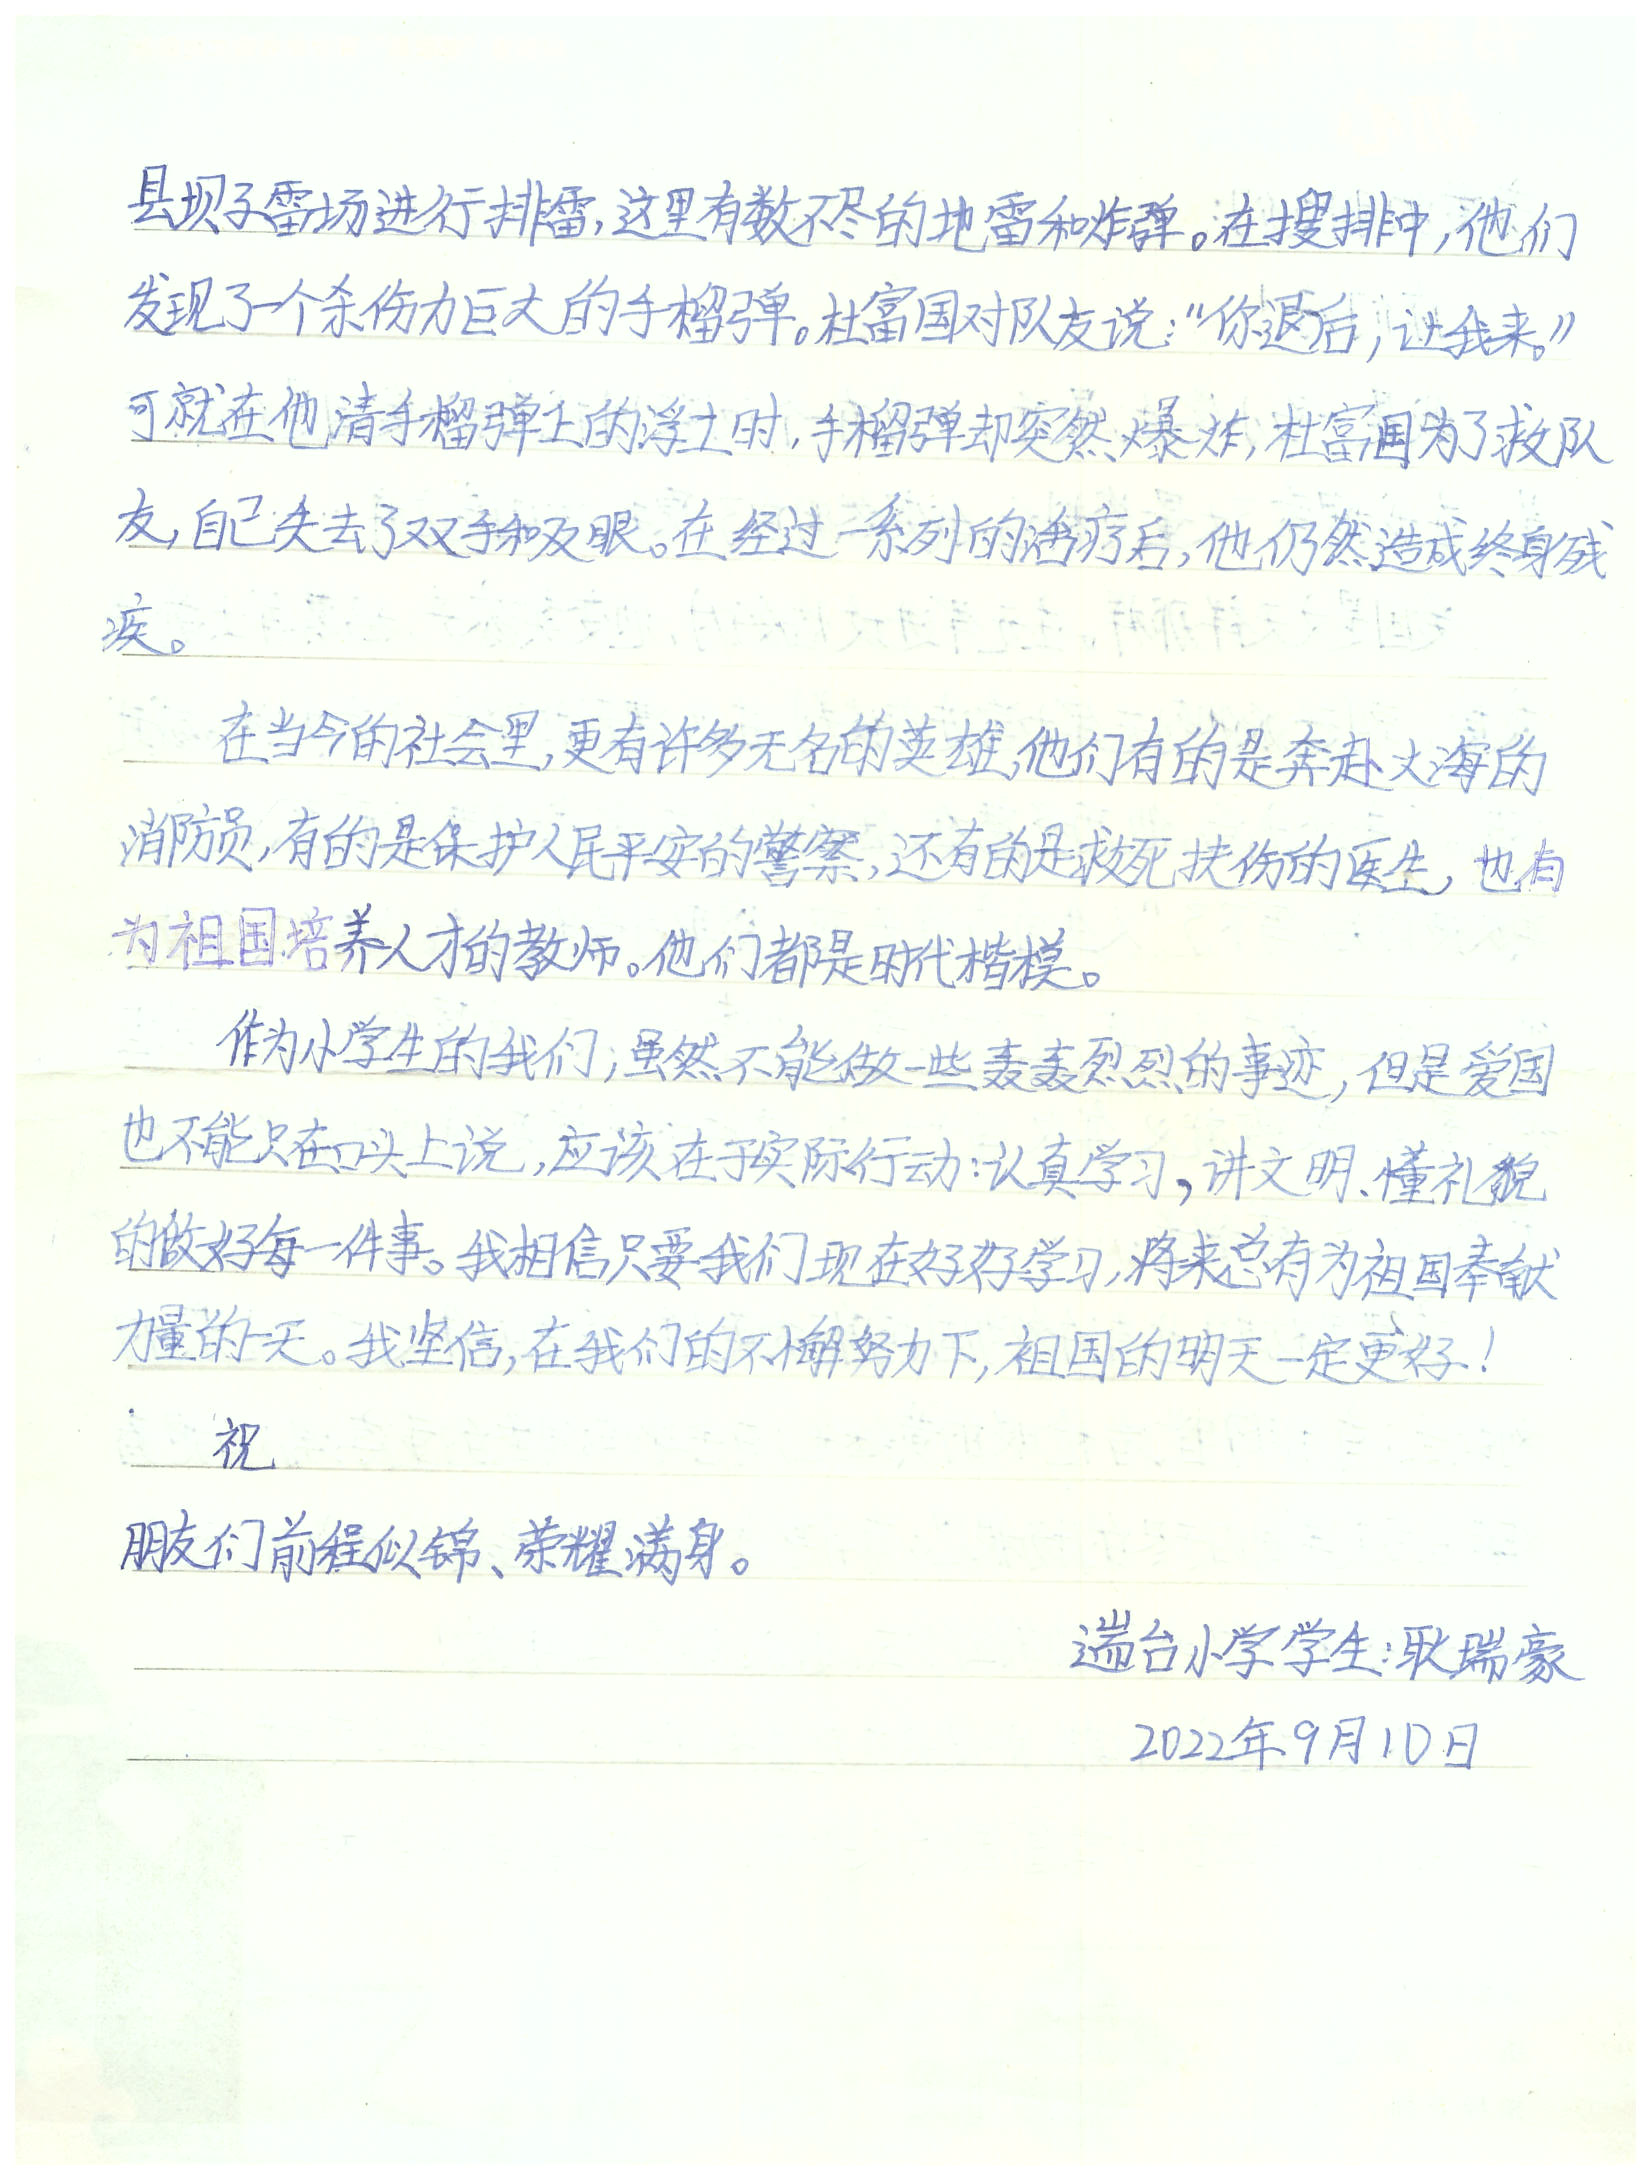 县坝子雷场进行排雷,这里有数不尽的地雷和炸弹。在搜排中,他们
发现了一个杀伤力巨大的手榴弹。杜富国对队友说:“你退后,让我来。”
可就在他清手榴弹上的浮土时,手榴弹却突然爆炸,杜富国为了救队
友,自己失去了双手和双眼。在经过一系列的治疗后,他仍然造成终身残
疾。
在当今的社会里,更有许多无名的英雄,他们有的是奔赴火海的
消防员,有的是保护人民平安的警察,还有的是救死扶伤的医生,也有
为祖国培养人才的教师。他们都是时代楷模。
作为小学生的我们,虽然不能做一些轰轰烈烈的事迹,但是爱国
也不能只在口头上说,应该在于实际行动:认真学习,讲文明、懂礼貌
的做好每一件事。我相信只要我们现在好好学习,将来总有为祖国奉献
力量的一天。我坚信,在我们的不懈努力下,祖国的明天一定更好!
祝
朋友们前程似锦、荣耀满身。
遄台小学学生:耿瑞豪
2022年9月10日